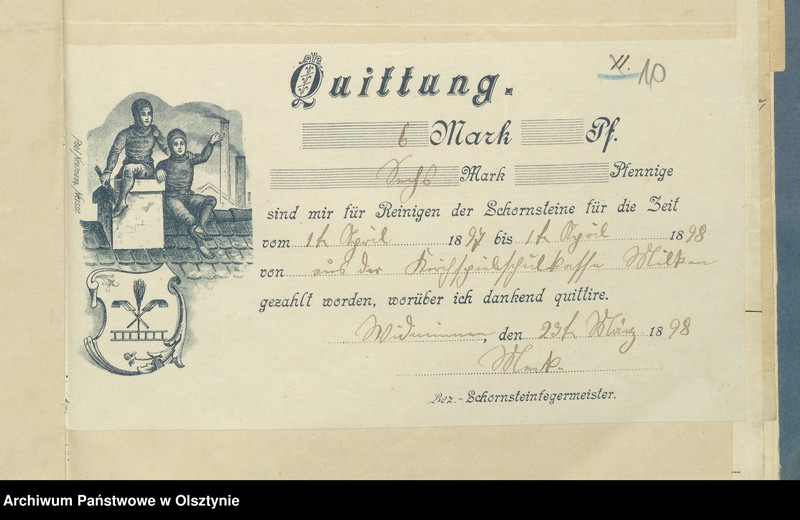 XI. 10
Quittung.
6 Mark Pf.
Sechs Mark Pfennige
sind mir für Reinigen der Schornsteine für die Zeit
vom 1t. April 1897 bis 1t. April 1898
von aus der Kirchspielschulkasse Milken
gezahlt worden, worüber ich dankend quittire.
Widminnen, den 23t. März 1898
Bez.-Schornsteinfegermeister.
Archiwum Państwowe w Olsztynie